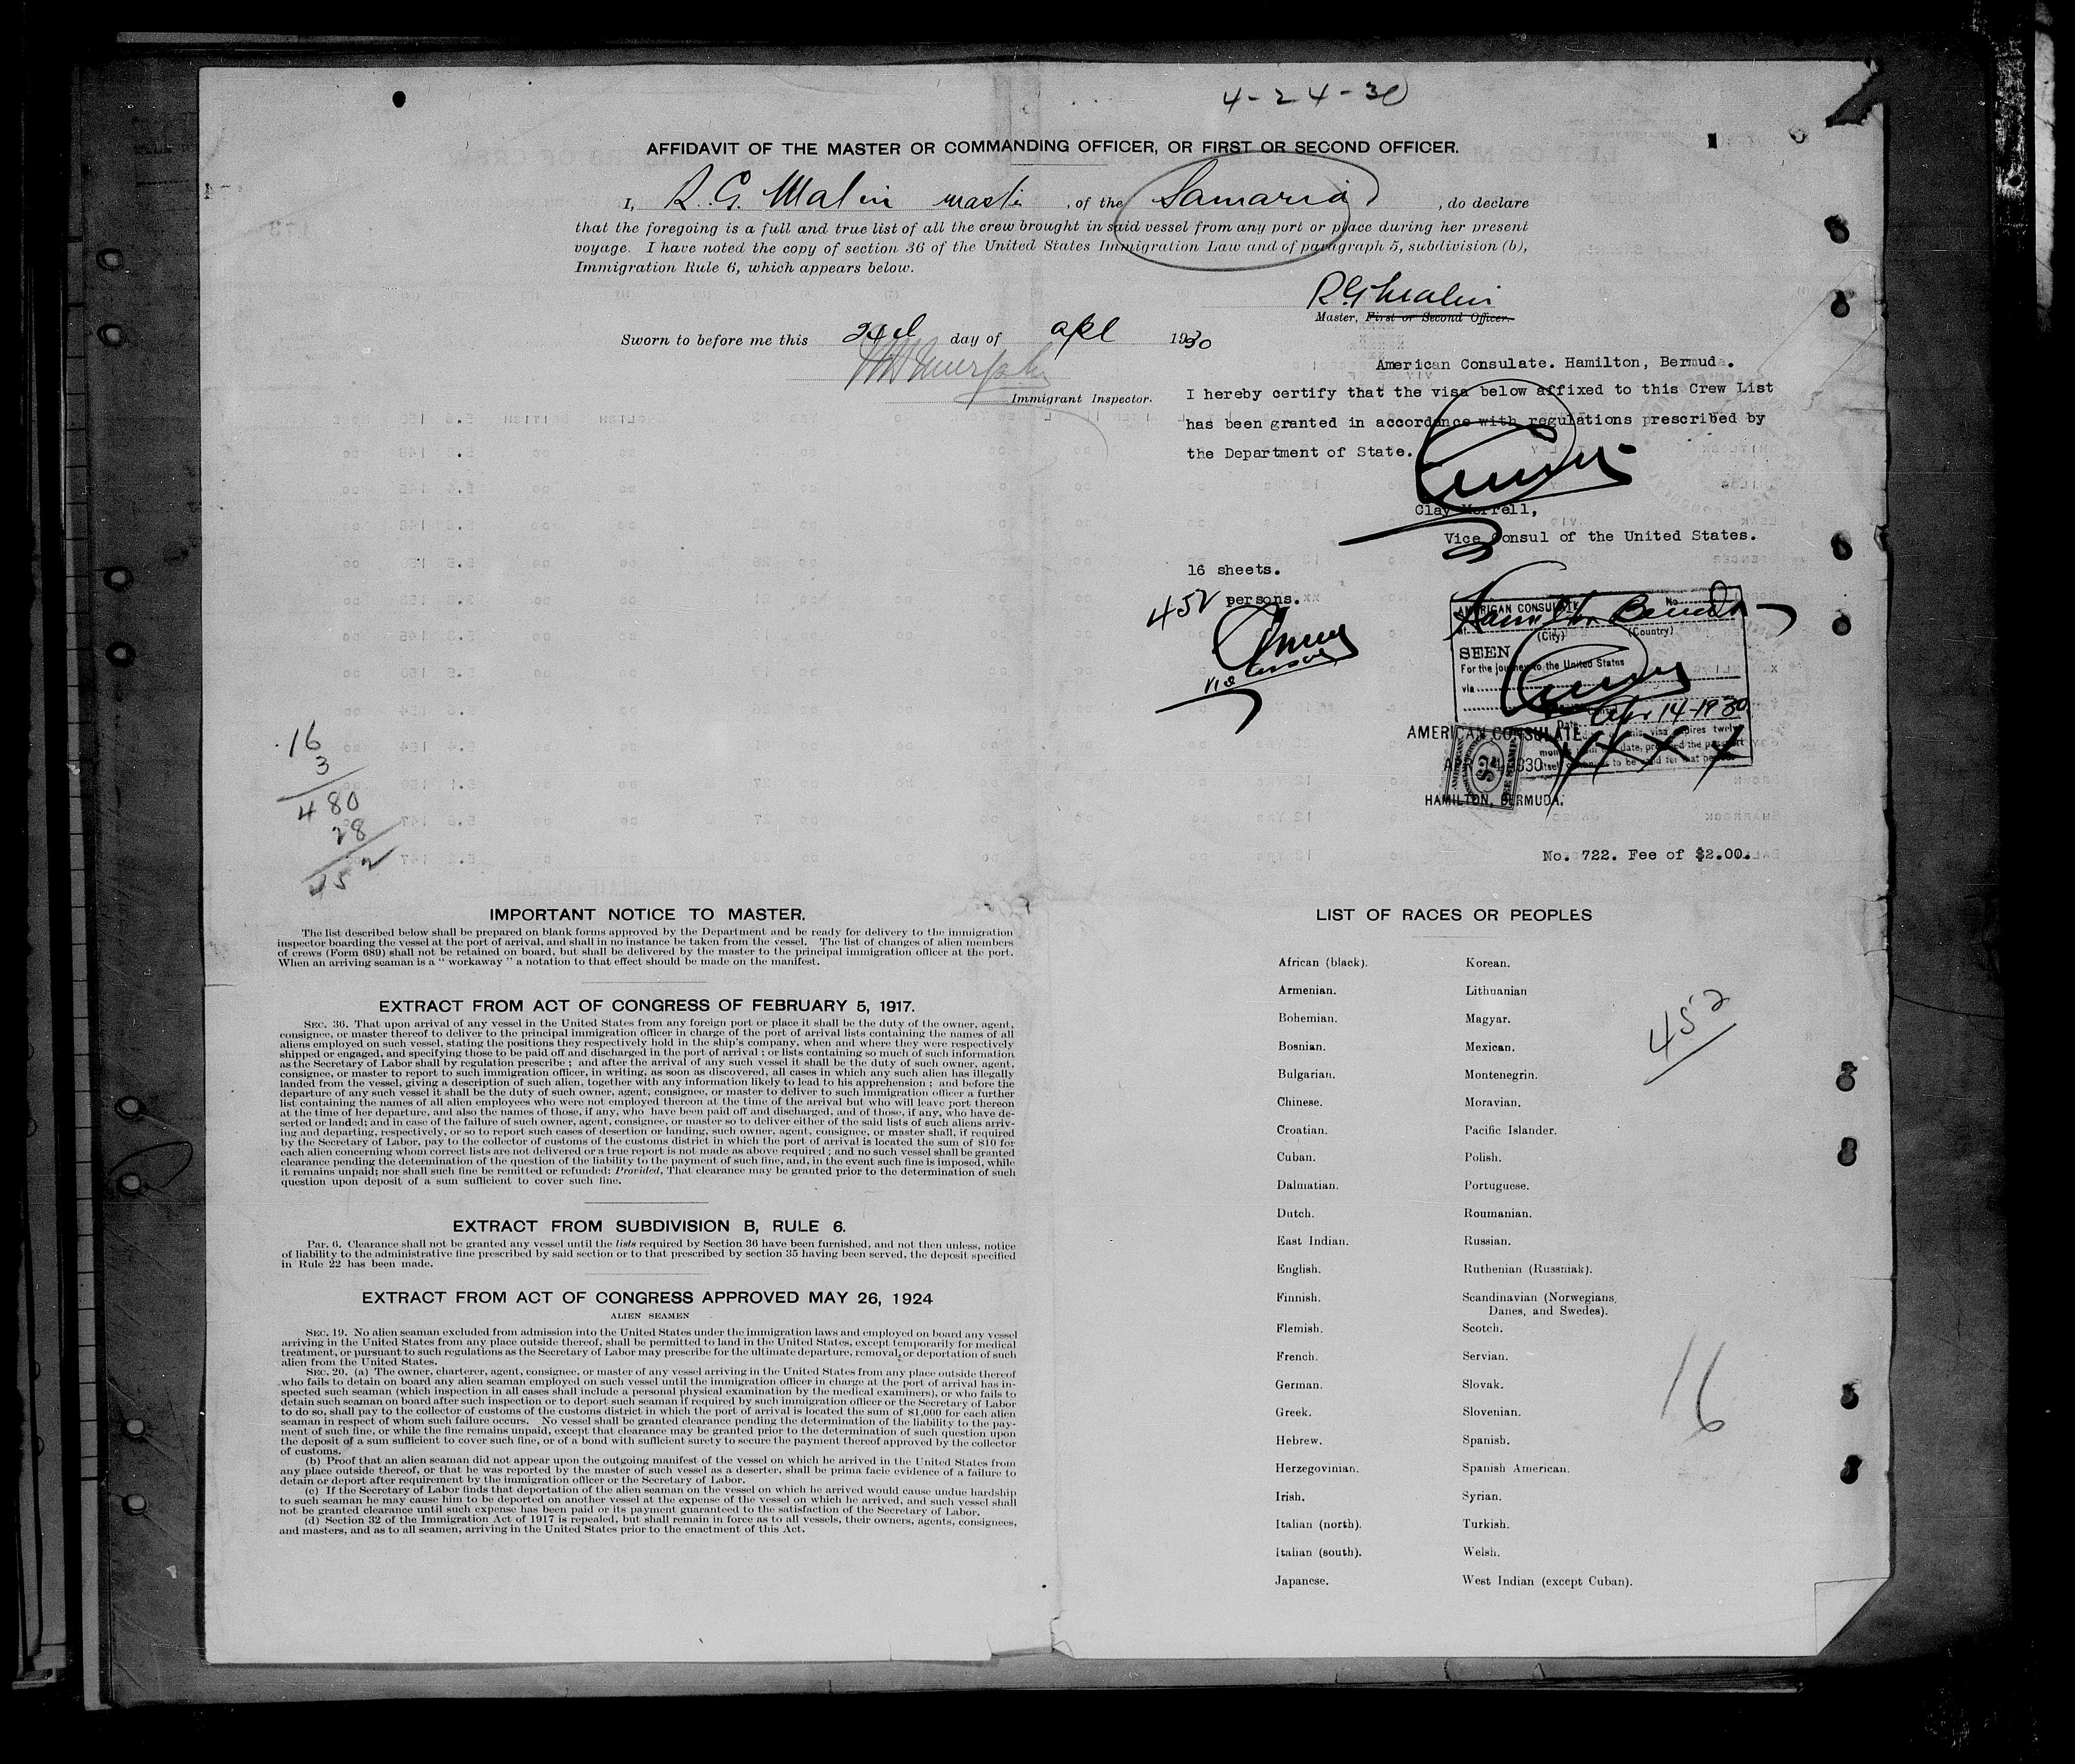 4-24-30
AFFIDAVIT OF THE MASTER OR COMMANDING OFFICER, OR FIRST OR SECOND OFFICER.
I, R. G. Malin master, of the Samaria, do declare
that the foregoing is a full and true list of all the crew brought in said vessel from any port or place during her present
voyage. I have noted the copy of section 36 of the United States Immigration Law and of paragraph 5, subdivision (b),
Immigration Rule 6, which appears below.
R G Malin
Master, First or Second Officer.
Sworn to before me this day of apl 1930
Immigrant Inspector.
American Consulate. Hamilton, Bermuda.
I hereby certify that the visa below affixed to this Crew List
has been granted in accordance with regulations prescribed by
the Department of State.
Clay Merrell,
Vice Consul of the United States.
16 sheets.
452 persons.
Vice Consul
AMERICAN CONSULATE No.
at Hamilton Bermuda
(City) (Country)
SEEN
For the journey to the United States
via
Consul
Date Apr 14-1930
this visa expires twelve
months from date, provided the passport
itself continues to be valid for that period.
XXXX
AMERICAN CONSULATE
$2
HAMILTON, BERMUDA.
No. 722. Fee of $2.00.
16
3
480
28
452
IMPORTANT NOTICE TO MASTER.
The list described below shall be prepared on blank forms approved by the Department and be ready for delivery to the immigration
inspector boarding the vessel at the port of arrival, and shall in no instance be taken from the vessel. The list of changes of alien members
of crews (Form 689) shall not be retained on board, but shall be delivered by the master to the principal immigration officer at the port.
When an arriving seaman is a " workaway " a notation to that effect should be made on the manifest.
EXTRACT FROM ACT OF CONGRESS OF FEBRUARY 5, 1917.
SEC. 36. That upon arrival of any vessel in the United States from any foreign port or place it shall be the duty of the owner, agent,
consignee, or master thereof to deliver to the principal immigration officer in charge of the port of arrival lists containing the names of all
aliens employed on such vessel, stating the positions they respectively hold in the ship's company, when and where they were respectively
shipped or engaged, and specifying those to be paid off and discharged in the port of arrival ; or lists containing so much of such information
as the Secretary of Labor shall by regulation prescribe ; and after the arrival of any such vessel it shall be the duty of such owner, agent,
consignee, or master to report to such immigration officer, in writing, as soon as discovered, all cases in which any such alien has illegally
landed from the vessel, giving a description of such alien, together with any information likely to lead to his apprehension ; and before the
departure of any such vessel it shall be the duty of such owner, agent, consignee, or master to deliver to such immigration officer a further
list containing the names of all alien employees who were not employed thereon at the time of the arrival but who will leave port thereon
at the time of her departure, and also the names of those, if any, who have been paid off and discharged, and of those, if any, who have de-
serted or landed; and in case of the failure of such owner, agent, consignee, or master so to deliver either of the said lists of such aliens arriv-
ing and departing, respectively, or so to report such cases of desertion or landing, such owner, agent, consignee, or master shall, if required
by the Secretary of Labor, pay to the collector of customs of the customs district in which the port of arrival is located the sum of $10 for
each alien concerning whom correct lists are not delivered or a true report is not made as above required ; and no such vessel shall be granted
clearance pending the determination of the question of the liability to the payment of such fine, and, in the event such fine is imposed, while
it remains unpaid; nor shall such fine be remitted or refunded: Provided, That clearance may be granted prior to the determination of such
question upon deposit of a sum sufficient to cover such fine.
EXTRACT FROM SUBDIVISION B, RULE 6.
Par. 6. Clearance shall not be granted any vessel until the lists required by Section 36 have been furnished, and not then unless, notice
of liability to the administrative fine prescribed by said section or to that prescribed by section 35 having been served, the deposit specified
in Rule 22 has been made.
EXTRACT FROM ACT OF CONGRESS APPROVED MAY 26, 1924
ALIEN SEAMEN
SEC. 19. No alien seaman excluded from admission into the United States under the immigration laws and employed on board any vessel
arriving in the United States from any place outside thereof, shall be permitted to land in the United States, except temporarily for medical
treatment, or pursuant to such regulations as the Secretary of Labor may prescribe for the ultimate departure, removal, or deportation of such
alien from the United States.
SEC. 20. (a) The owner, charterer, agent, consignee, or master of any vessel arriving in the United States from any place outside thereof
who fails to detain on board any alien seaman employed on such vessel until the immigration officer in charge at the port of arrival has in-
spected such seaman (which inspection in all cases shall include a personal physical examination by the medical examiners), or who fails to
detain such seaman on board after such inspection or to deport such seaman if required by such immigration officer or the Secretary of Labor
to do so, shall pay to the collector of customs of the customs district in which the port of arrival is located the sum of $1,000 for each alien
seaman in respect of whom such failure occurs. No vessel shall be granted clearance pending the determination of the liability to the pay-
ment of such fine, or while the fine remains unpaid, except that clearance may be granted prior to the determination of such question upon
the deposit of a sum sufficient to cover such fine, or of a bond with sufficient surety to secure the payment thereof approved by the collector
of customs.
(b) Proof that an alien seaman did not appear upon the outgoing manifest of the vessel on which he arrived in the United States from
any place outside thereof, or that he was reported by the master of such vessel as a deserter, shall be prima facie evidence of a failure to
detain or deport after requirement by the immigration officer or the Secretary of Labor.
(c) If the Secretary of Labor finds that deportation of the alien seaman on the vessel on which he arrived would cause undue hardship
to such seaman he may cause him to be deported on another vessel at the expense of the vessel on which he arrived, and such vessel shall
not be granted clearance until such expense has been paid or its payment guaranteed to the satisfaction of the Secretary of Labor.
(d) Section 32 of the Immigration Act of 1917 is repealed, but shall remain in force as to all vessels, their owners, agents, consignees,
and masters, and as to all seamen, arriving in the United States prior to the enactment of this Act.
LIST OF RACES OR PEOPLES
African (black). Korean.
Armenian. Lithuanian
Bohemian. Magyar.
Bosnian. Mexican.
Bulgarian. Montenegrin.
Chinese. Moravian.
Croatian. Pacific Islander.
Cuban. Polish.
Dalmatian. Portuguese.
Dutch. Roumanian.
East Indian. Russian.
English. Ruthenian (Russniak).
Finnish. Scandinavian (Norwegians,
Danes, and Swedes).
Flemish. Scotch.
French. Servian.
German. Slovak.
Greek. Slovenian.
Hebrew. Spanish.
Herzegovinian. Spanish American.
Irish. Syrian.
Italian (north). Turkish.
Italian (south). Welsh.
Japanese. West Indian (except Cuban).
452
16